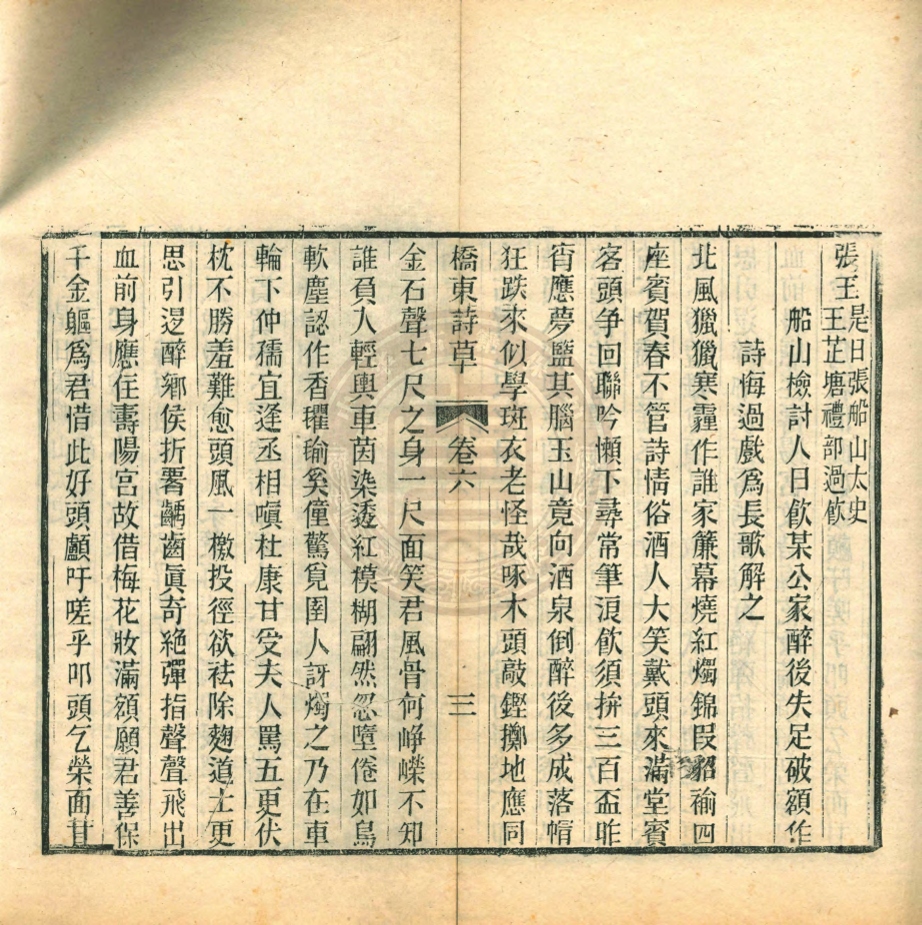 張王是日張船山太史
王芷塘禮部過飲
船山檢討人日飲某公家醉後失足破額作
詩悔過戲爲長歌解之
北風獵獵寒霾作誰家簾幕燒紅燭錦段貂褕四
座賓賀春不管詩情俗酒人大笑戴頭來滿堂賓
客頭爭回聯吟懶下尋常筆浪飲須拚三百盃昨
宵應夢盬其腦玉山竟向酒泉倒醉後多成落帽
狂跌來似學斑衣老怪哉啄木頭敲鏗擲地應同
橋東詩草 卷六 三
金石聲七尺之身一尺面笑君風骨何崢嶸不知
誰負人輕輿車茵染透紅模糊翩然忽墮倦如鳥
軟塵認作香㼆瑜奚僮驚覓圉人訝燭之乃在車
輪下仲孺宜逢丞相嗔杜康甘受夫人罵五更伏
枕不勝羞難愈頭風一檄投徑欲祛除麴道士更
思引逻醉鄉侯折署齲齒眞奇絶彈指聲聲飛出
血前身應住壽陽宮故借梅花妝滿額願君善保
千金軀爲君惜此好頭顱吁嗟乎叩頭乞榮面甘